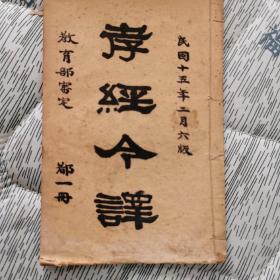 民国十五年二月六版
孝經今譯
教育部審定
鄒一冊